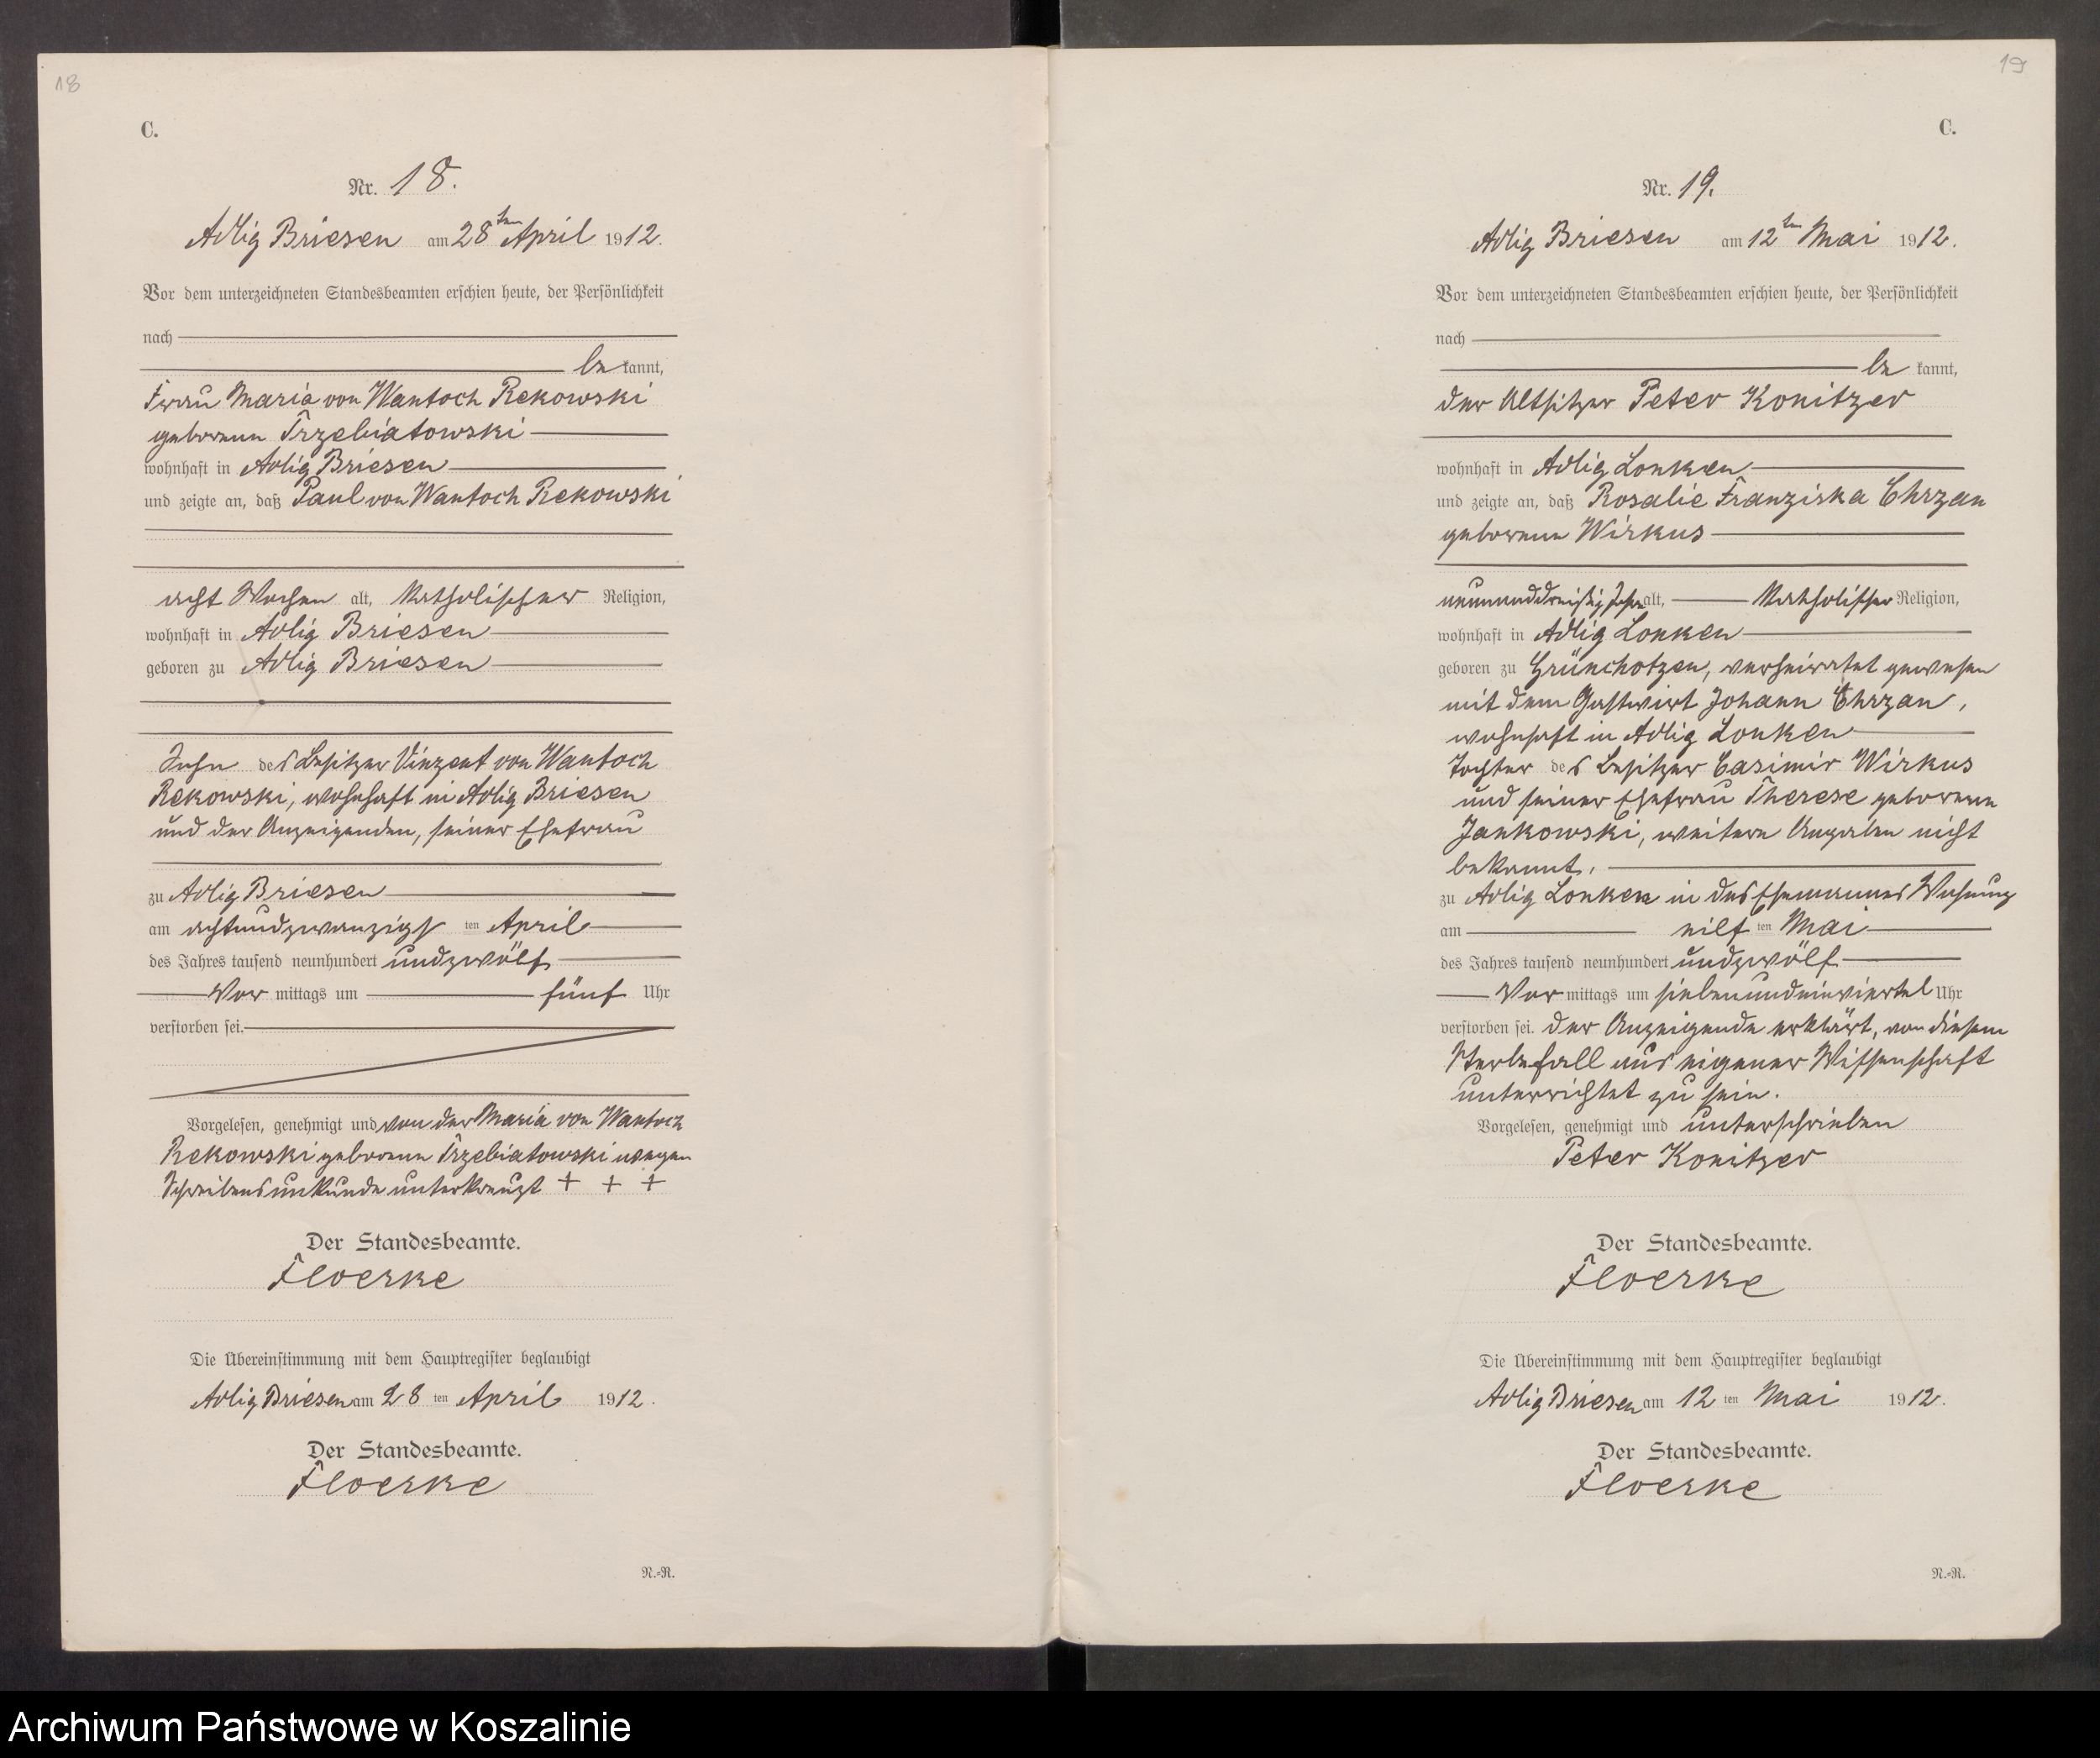 18
C.
Nr. 18.
Adlig Briesen am 28ten April 1912.
Vor dem unterzeichneten Standesbeamten erschien heute, der Persönlichkeit
nach
bekannt,
Frau Maria von Wantoch Rekowski
geborene Trzebiatowski
wohnhaft in Adlig Briesen
und zeigte an, daß Paul von Wantoch Rekowski
acht Wochen alt, katholischer Religion,
wohnhaft in Adlig Briesen
geboren zu Adlig Briesen
Sohn des Besitzer Vinzent von Wantoch
Rekowski, wohnhaft in Adlig Briesen
und der Anzeigenden, seiner Ehefrau
zu Adlig Briesen
am achtundzwanzigsten April
des Jahres tausend neunhundert undzwölf
Vor mittags um fünf Uhr
verstorben sei.
Vorgelesen, genehmigt und von der Maria von Wantoch
Rekowski geborene Trzebiatowski wegen
Schreibensunkunde unterkreuzt + + +
Der Standesbeamte.
Floerke
Die Übereinstimmung mit dem Hauptregister beglaubigt
Adlig Briesen am 28 ten April 1912.
Der Standesbeamte.
Floerke
N.-R.
19
C.
Nr. 19.
Adlig Briesen am 12ten Mai 1912.
Vor dem unterzeichneten Standesbeamten erschien heute, der Persönlichkeit
nach
bekannt,
der Altsitzer Peter Konitzer
wohnhaft in Adlig Lonken
und zeigte an, daß Rosalie Franziska Chrzan
geborene Wirkus
neununddreißig Jahre alt, katholischer Religion,
wohnhaft in Adlig Lonken
geboren zu Grünchotzen, verheiratet gewesen
mit dem Gastwirt Johann Chrzan,
wohnhaft in Adlig Lonken
Tochter des Besitzer Casimir Wirkus
und seiner Ehefrau Therese geborene
Jankowski, weitere Angaben nicht
bekannt.
zu Adlig Lonken in des Ehemannes Wohnung
am elften Mai
des Jahres tausend neunhundert undzwölf
Vor mittags um siebenundeinviertel Uhr
verstorben sei. Der Anzeigende erklärt, von diesem
Sterbefall aus eigener Wissenschaft
unterrichtet zu sein.
Vorgelesen, genehmigt und unterschrieben
Peter Konitzer
Der Standesbeamte.
Floerke
Die Übereinstimmung mit dem Hauptregister beglaubigt
Adlig Briesen am 12 ten Mai 1912.
Der Standesbeamte.
Floerke
N.-R.
Archiwum Państwowe w Koszalinie